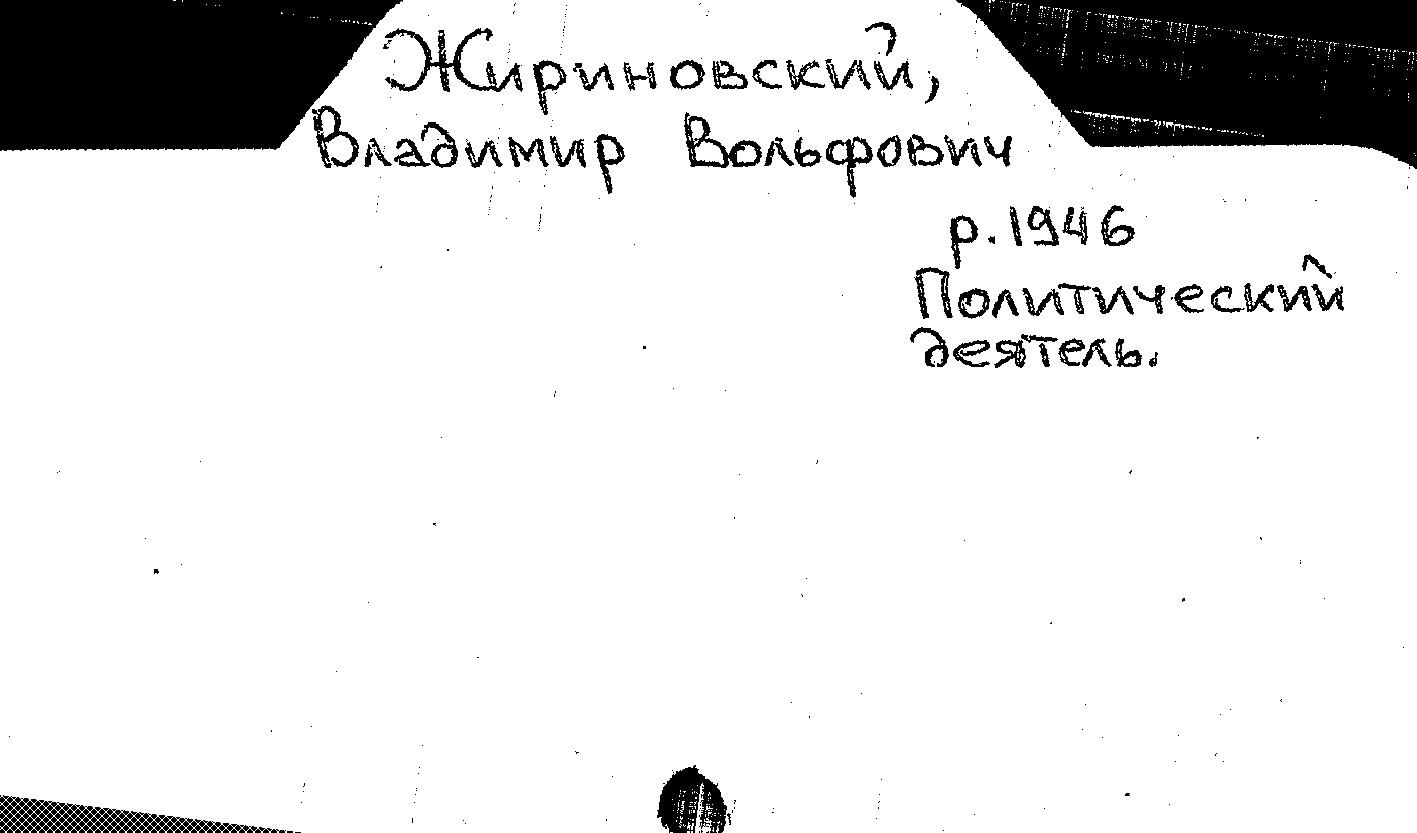 Жириновский,
Владимир Вольфович
р. 1946
Политический
деятель.